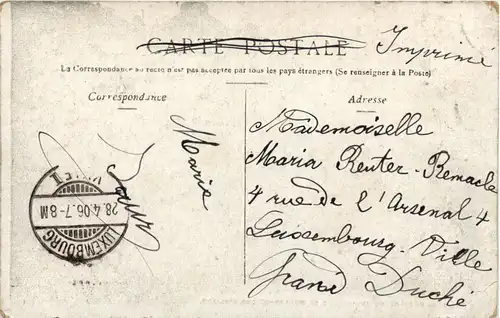 CARTE POSTALE
Imprimé
La Correspondance au recto n'est pas acceptée par tous les pays étrangers (Se renseigner à la Poste)
Correspondance
Marie
Adresse
Mademoiselle
Maria Reuter-Remacle
4 rue de l'Arsenal 4
Luxembourg-Ville
Grand Duché
LUXEMBOURG
VILLE
28.4.06.7-8M